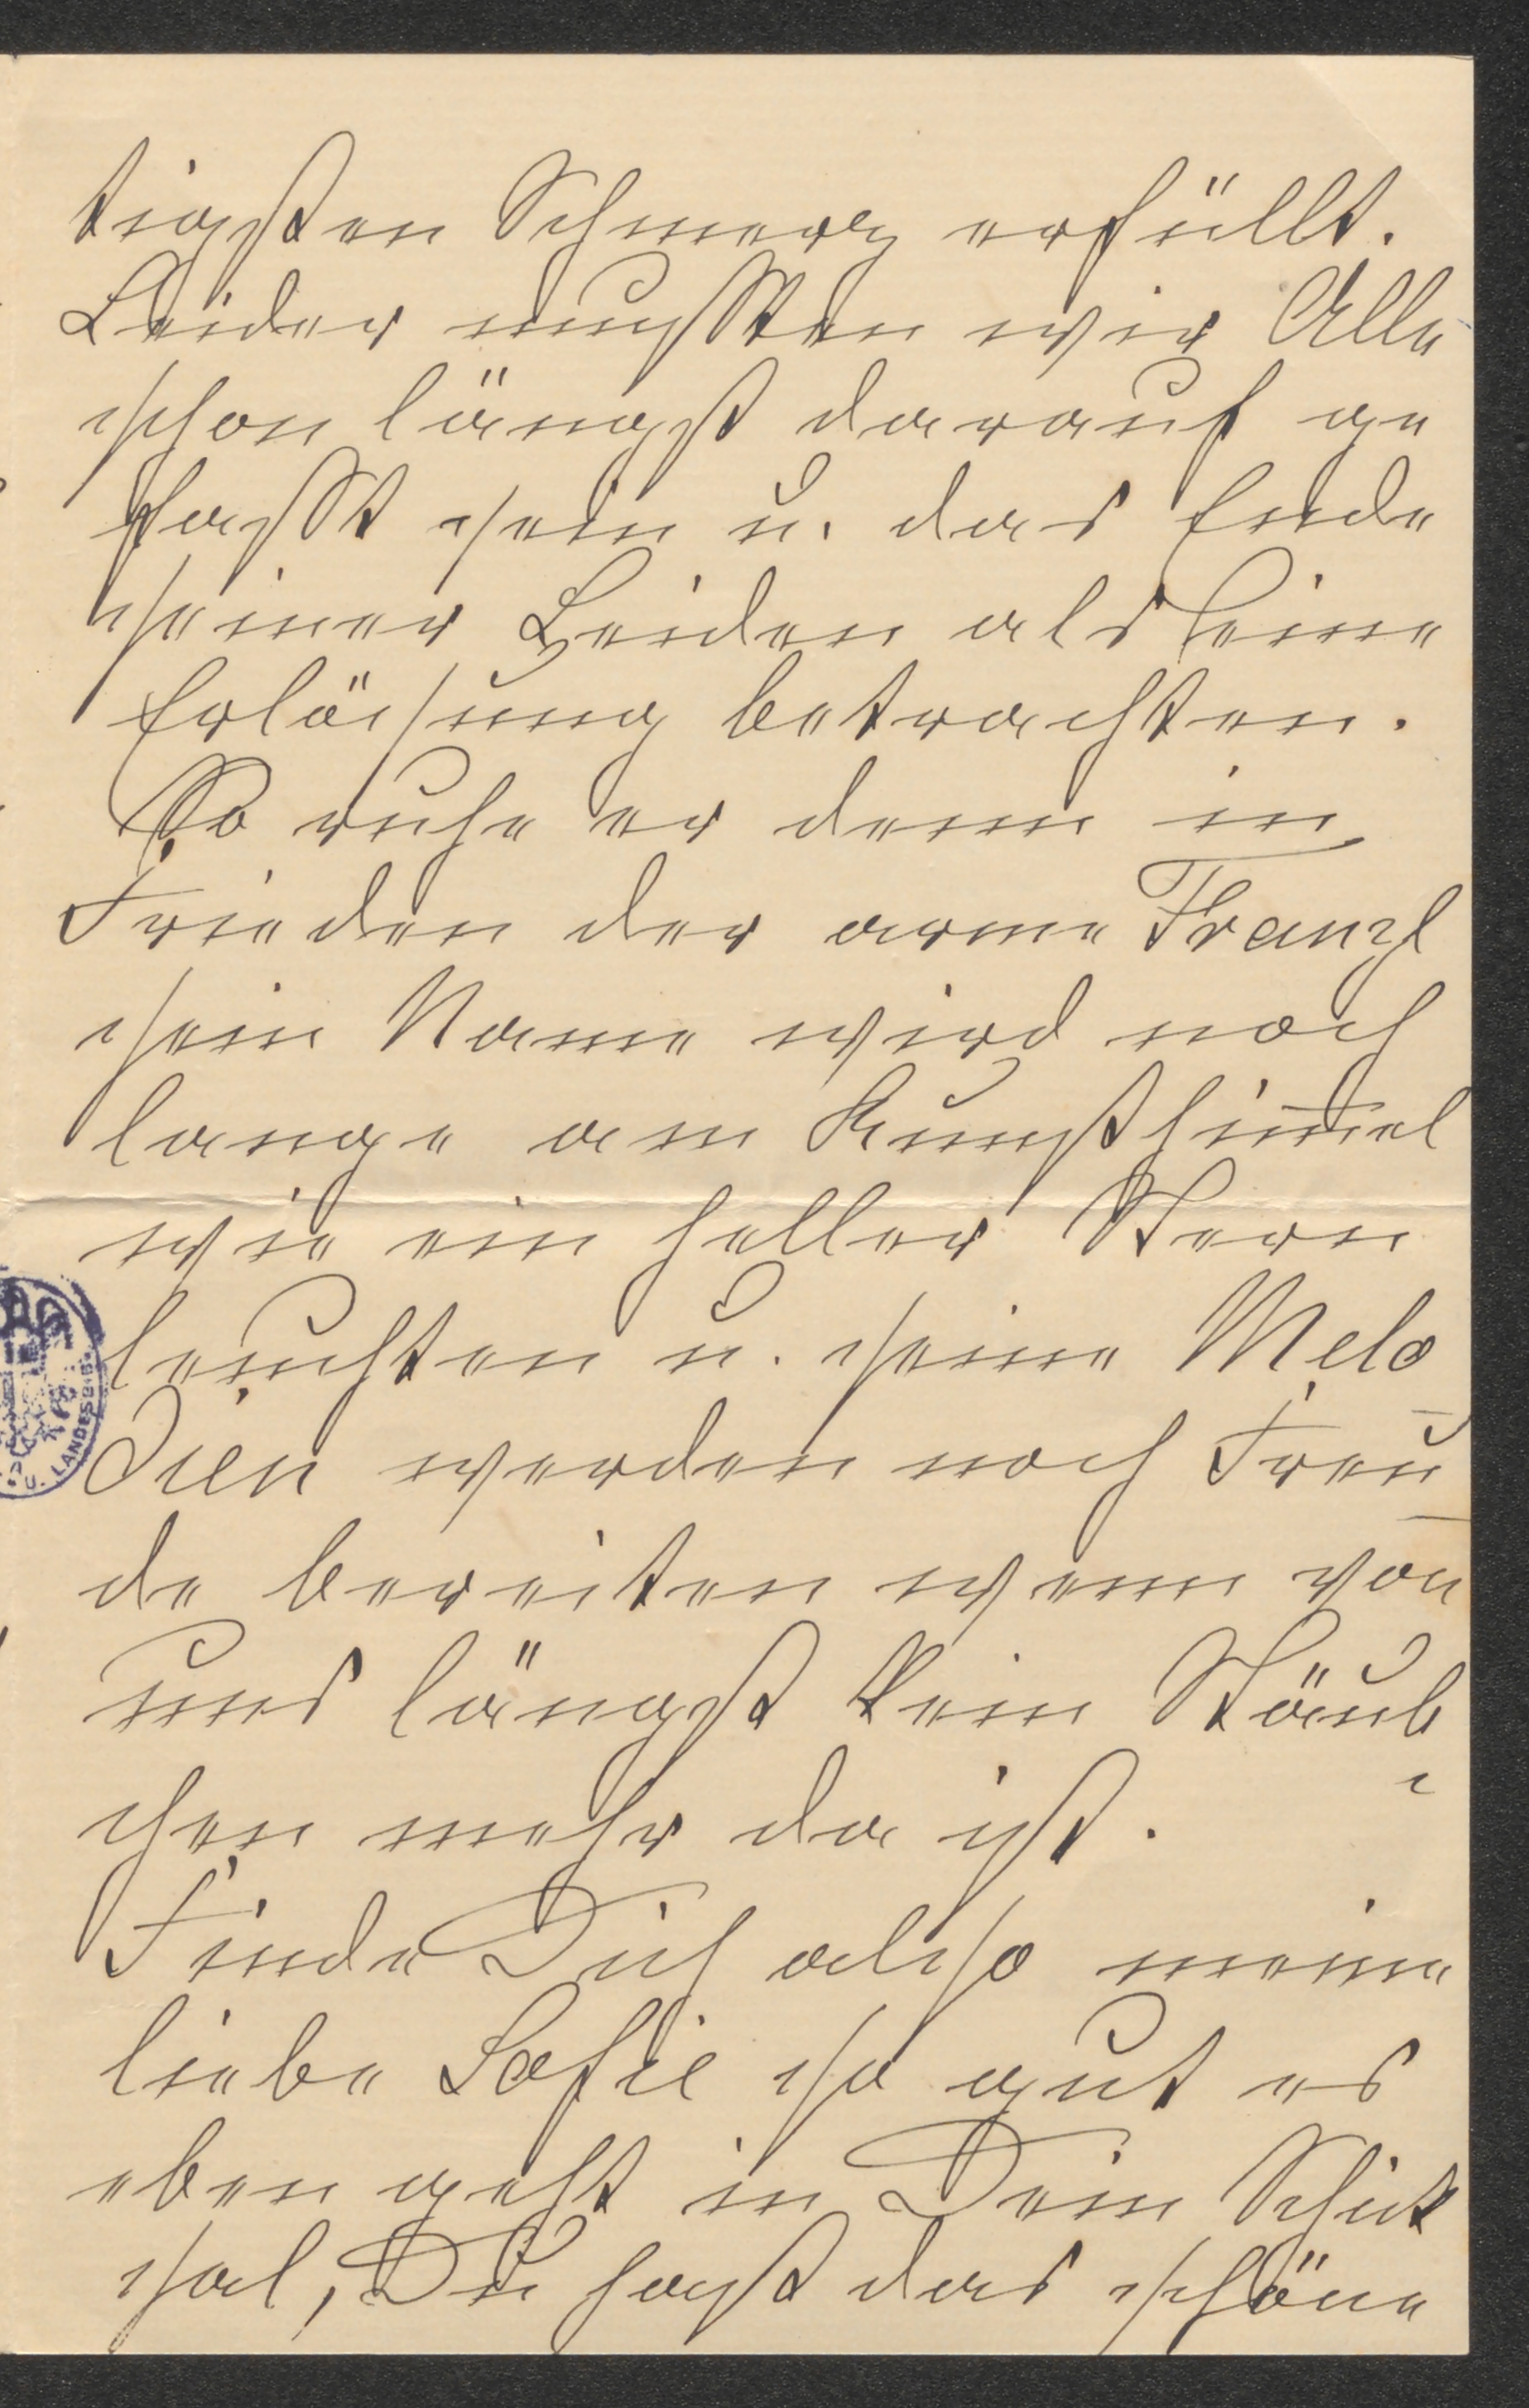 tigsten Schmerz erfüllt.
Leider mussten wir Alle
schon längst darauf ge
fasst sein u. das Ende
seiner Leiden als eine
Erlösung betrachten.
So ruhe er denn in
Frieden der arme Franzl
sein Name wird noch
lange am Kunsthim̅el
wie ein heller Stern
leuchten u. seine Melo
dien werden noch Freu
de bereiten wenn von
uns längst kein Stäub
chen mehr da ist.
Finde Dich also meine
liebe Sofie so gut es
eben geht in Dein Schick
sal, Du hast das schöne
U. LANDESBIB.